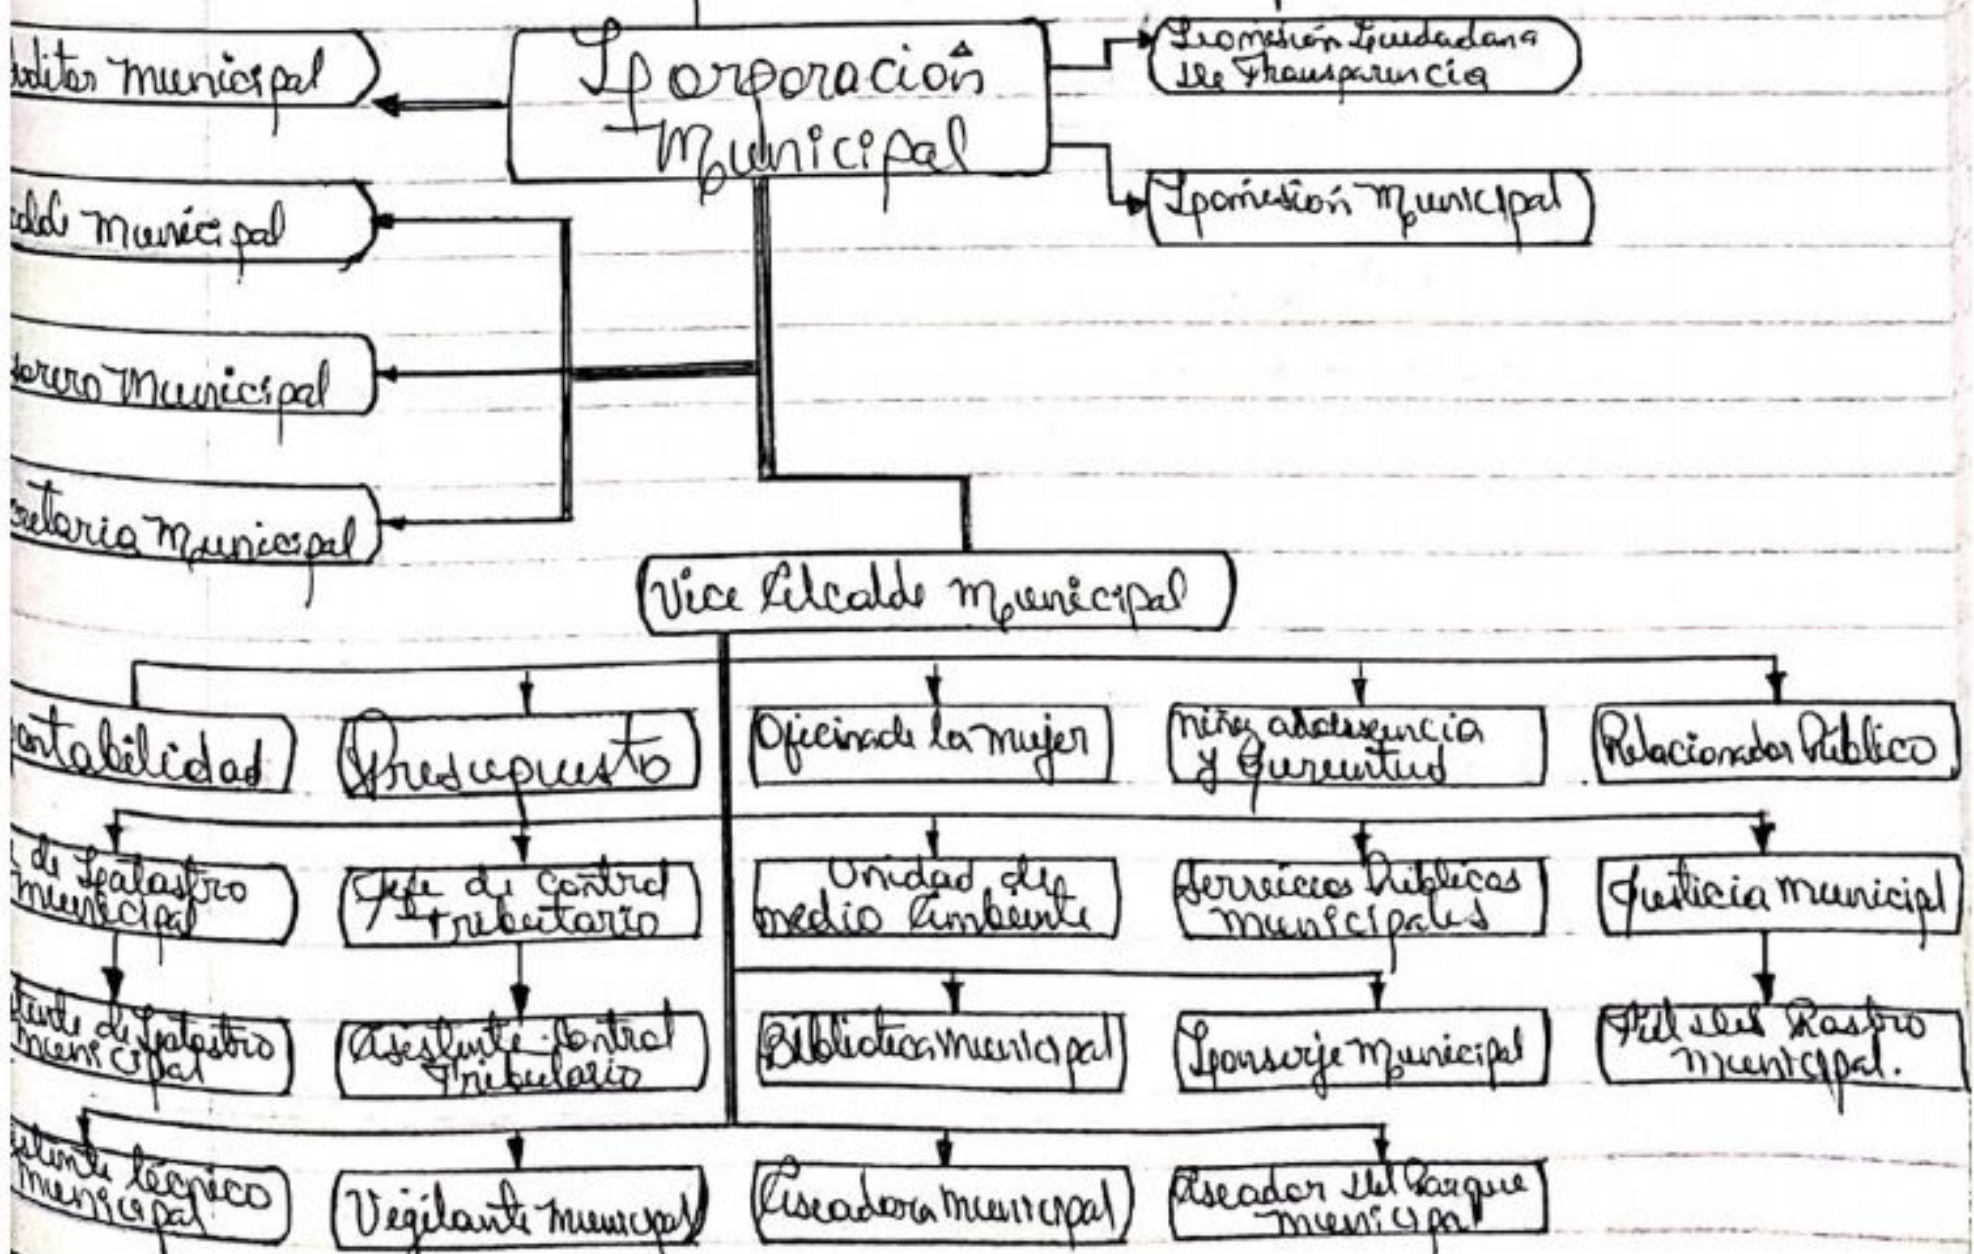 uditor Municipal
Corporación
Municipal
Comisión Ciudadana
De Transparencia
calde Municipal
Comisión Municipal
sorero Municipal
cretaria Municipal
Vice Alcalde Municipal
ontabilidad
Presupuesto
Oficina de la Mujer
Niñez adolescencia
y Juventud
Relacionador Público
de Catastro
Municipal
Jefe de Control
Tributario
Unidad de
medio Ambiente
Servicios Públicos
Municipales
Justicia Municipal
stente de Catastro
Municipal
Asistente Control
Tributario
Biblioteca Municipal
Conserje Municipal
Fiel del Rastro
Municipal.
istente técnico
Municipal
Vigilante Municipal
Aseadora Municipal
Aseador Del Parque
Municipal